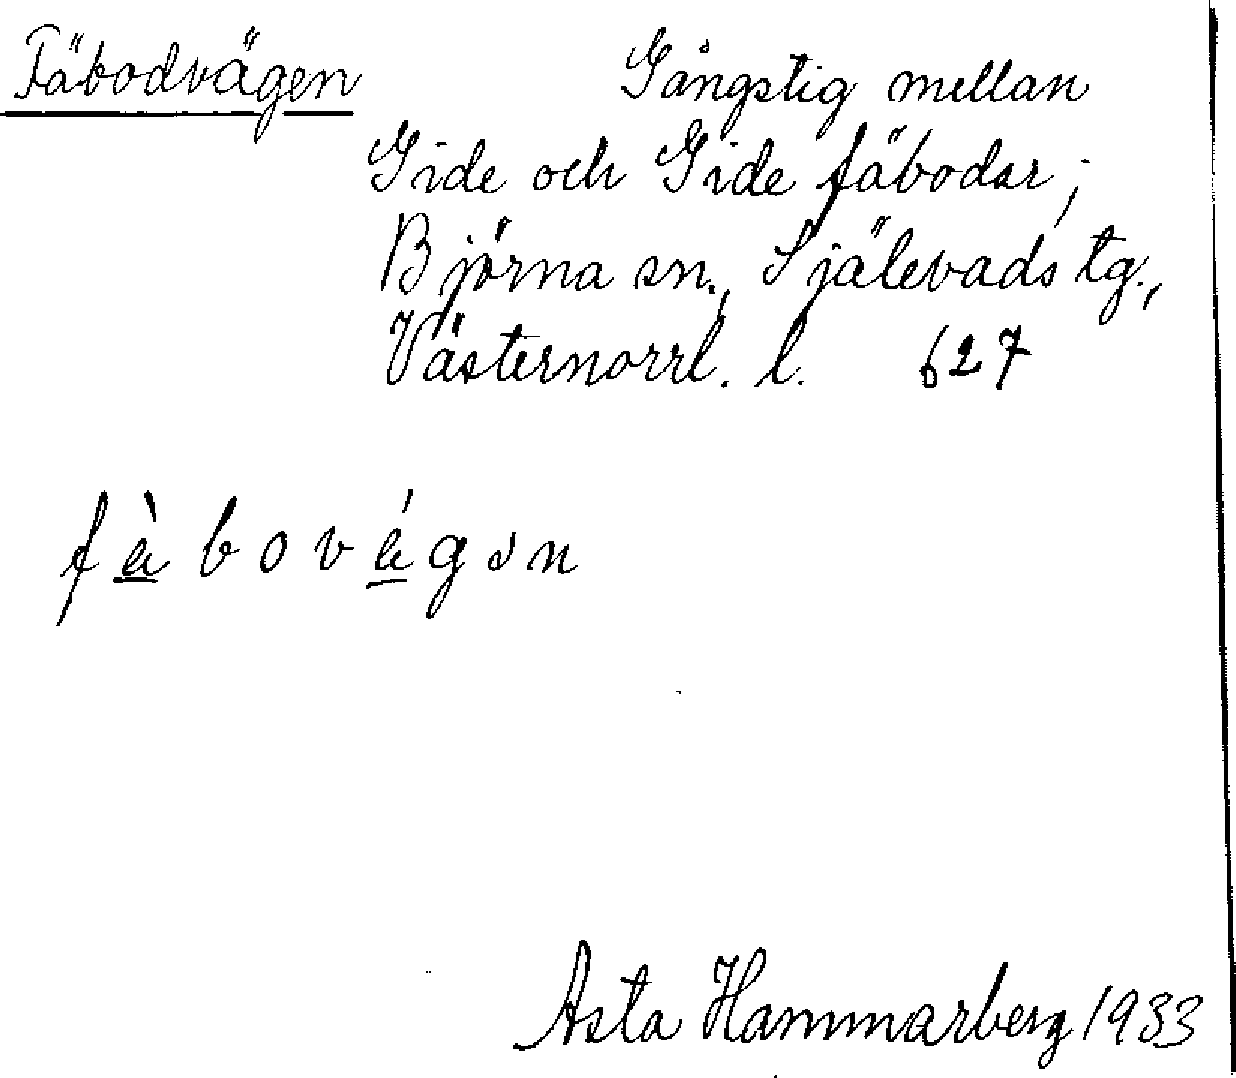 Fäbodvägen Gångstig mellan
Gide och Gide fäbodar;
Björna sn., Själevads tg.,
Västernorrl. l. 627
fàbovágən
Asta Hammarberg 1933